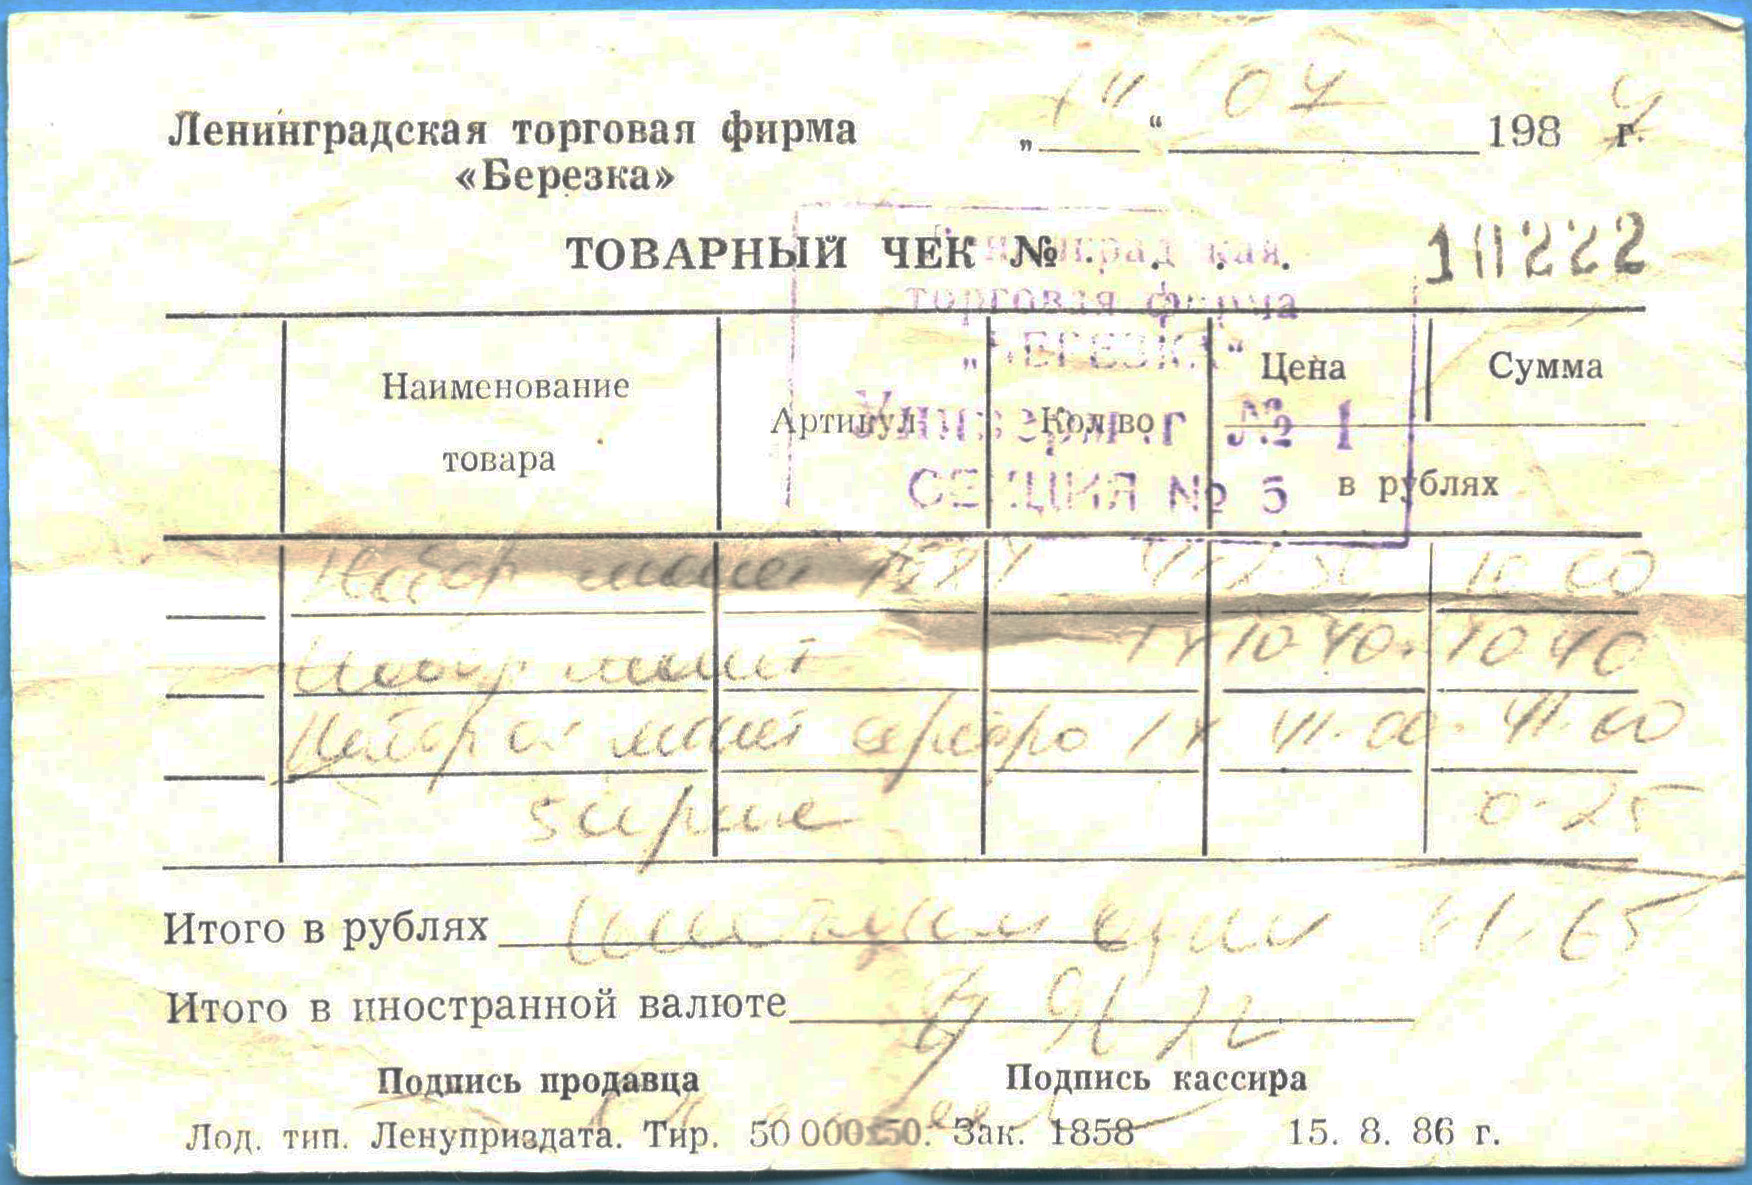 Ленинградская торговая фирма
«Березка»
„14“ 07 198 г.
ТОВАРНЫЙ ЧЕК № . . . . 10222
Ленинградская
торговая фирма
„БЕРЕЗКА“
Универмаг № 1
СЕКЦИЯ № 5
Наименование товара Артикул Кол-во Цена Сумма
в рублях
Набор монет
Набор монет 1х 10-40 10 40
Набор монет серебро 1х 41-00 41-00
0-25
Итого в рублях один 61-65
Итого в иностранной валюте
Подпись продавца Подпись кассира
Лод. тип. Ленуприздата. Тир. 50 000х50. Зак. 1858 15. 8. 86 г.